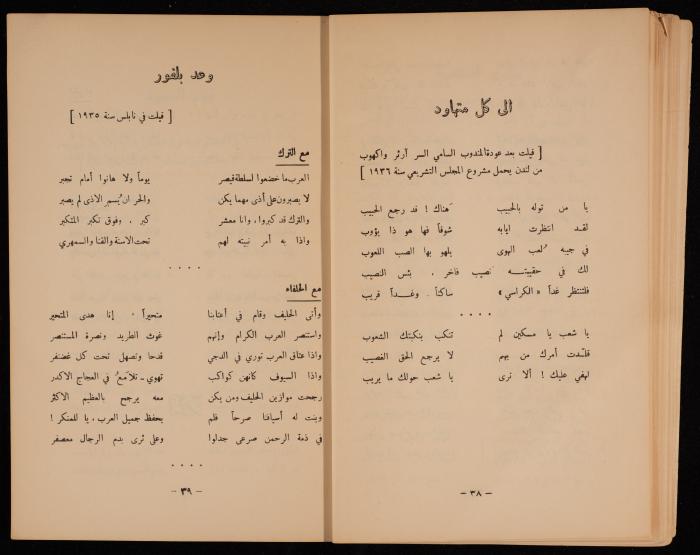 الى كل متهاود
[ قيلت بعد عودة المندوب السامي السر آرثر واكهوب
من لندن يحمل مشروع المجلس التشريعي سنة ١٩٣٦ ]
يا من توله بالحبيب هناك ! قد رجع الحبيب
لقد انتظرت ايابه شوقاً فها هو ذا يؤوب
في جيبه لُعب الهوى يلهو بها الصب اللعوب
لك في حقيبته نصيب فاخر . بئس النصيب
فلتنتظر غداً « الكراسي » ساكناً . وغداً قريب
• • • •
يا شعب يا مسكين لم تنكب بنكبتك الشعوب
قلّدت أمرك من بهم لا يرجع الحق الغصيب
لهفي عليك ! ألا ترى يا شعب حولك ما يريب
— ٣٨ —
وعد بلفور
[ قيلت في نابلس سنة ١٩٣٥ ]
مع الترك
العرب ما خضعوا لسلطة قيصر يوماً ولا هانوا أمام تجبر
لا يصبرون على أذى مهما يكن والحر ان يُسم الاذى لم يصبر
والترك قد كبروا . وانا معشر كبر . وفوق تكبر المتكبر
واذا به أمر نبيته لهم تحت الاسنة والقنا والسمهري
• • • •
مع الحلفاء
وأتى الحليف وقام في أعتابنا متحيراً ، إنا هدى المتحير
واستنصر العرب الكرام وإنهم غوث الطريد ونصرة المستنصر
واذا عتاق العرب توري في الدجى قدحا وتصهل تحت كل غضنفر
واذا السيوف كأنهن كواكب تهوي ــ تلامَعُ في العجاج الاكدر
رجحت موازين الحليف ومن يكن معه يرجح بالعظيم الاكثر
وبنت له أسيافنا صرحاً فلم يحفظ جميل العرب . يا للمنكر !
في ذمة الرحمن صرعى جدلوا وعلى ثرى بدم الرجال معصفر
• • • •
— ٣٩ —